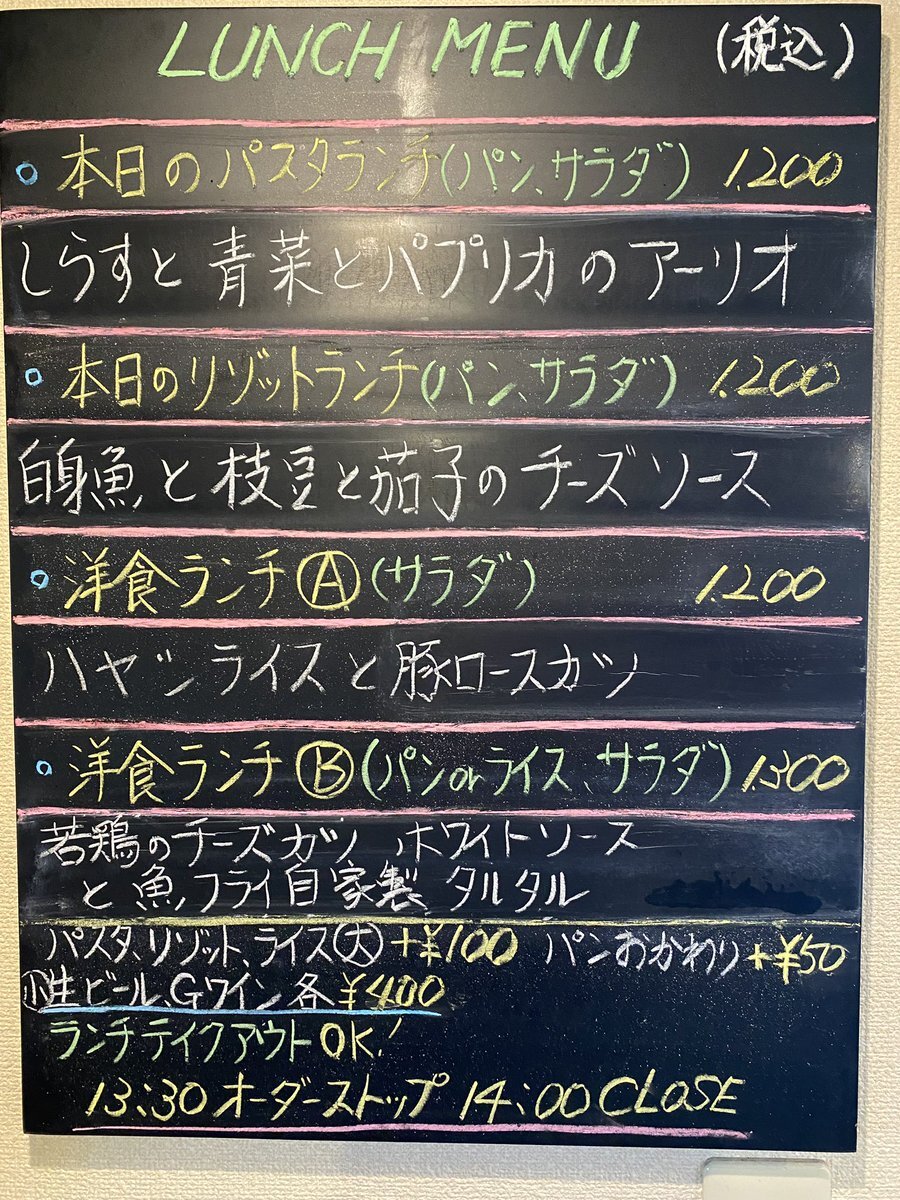 LUNCH MENU (税込)
○ 本日のパスタランチ(パン、サラダ) 1.200
しらすと青菜とパプリカのアーリオ
○ 本日のリゾットランチ(パン、サラダ) 1.200
白身魚と枝豆と茄子のチーズソース
○ 洋食ランチⒶ(サラダ) 1.200
ハヤシライスと豚ロースカツ
○ 洋食ランチⒷ(パンorライス、サラダ) 1.300
若鶏のチーズカツ ホワイトソース
と魚フライ自家製タルタル
パスタ、リゾット、ライス(大)+¥100 パンおかわり+¥50
(小)生ビール、Gワイン各¥400
ランチテイクアウトOK!
13:30オーダーストップ 14:00CLOSE